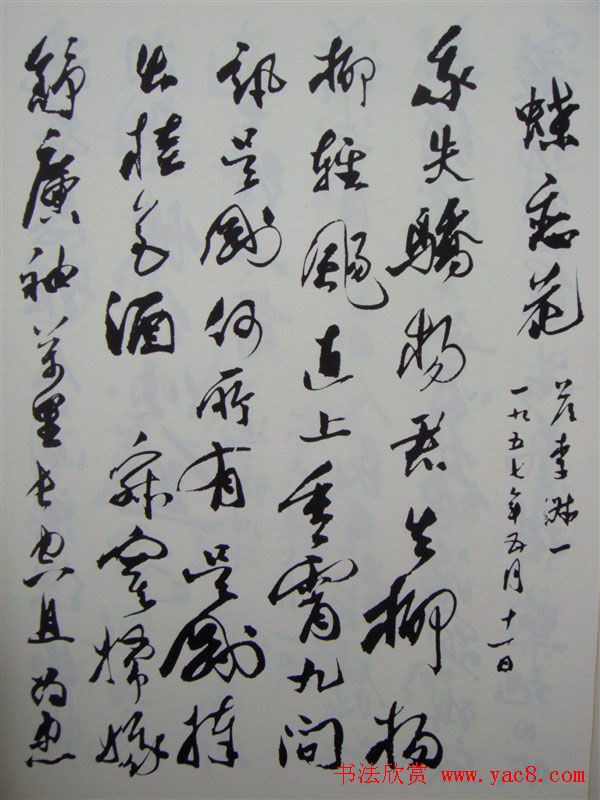 蝶恋花
答李淑一
一九五七年五月十一日
我失驕楊君失柳楊
柳輕颺直上重霄九問
訊吳剛何所有吳剛捧
出桂花酒寂寞嫦娥
舒廣袖萬里長空且為忠
书法欣赏 www.yac8.com